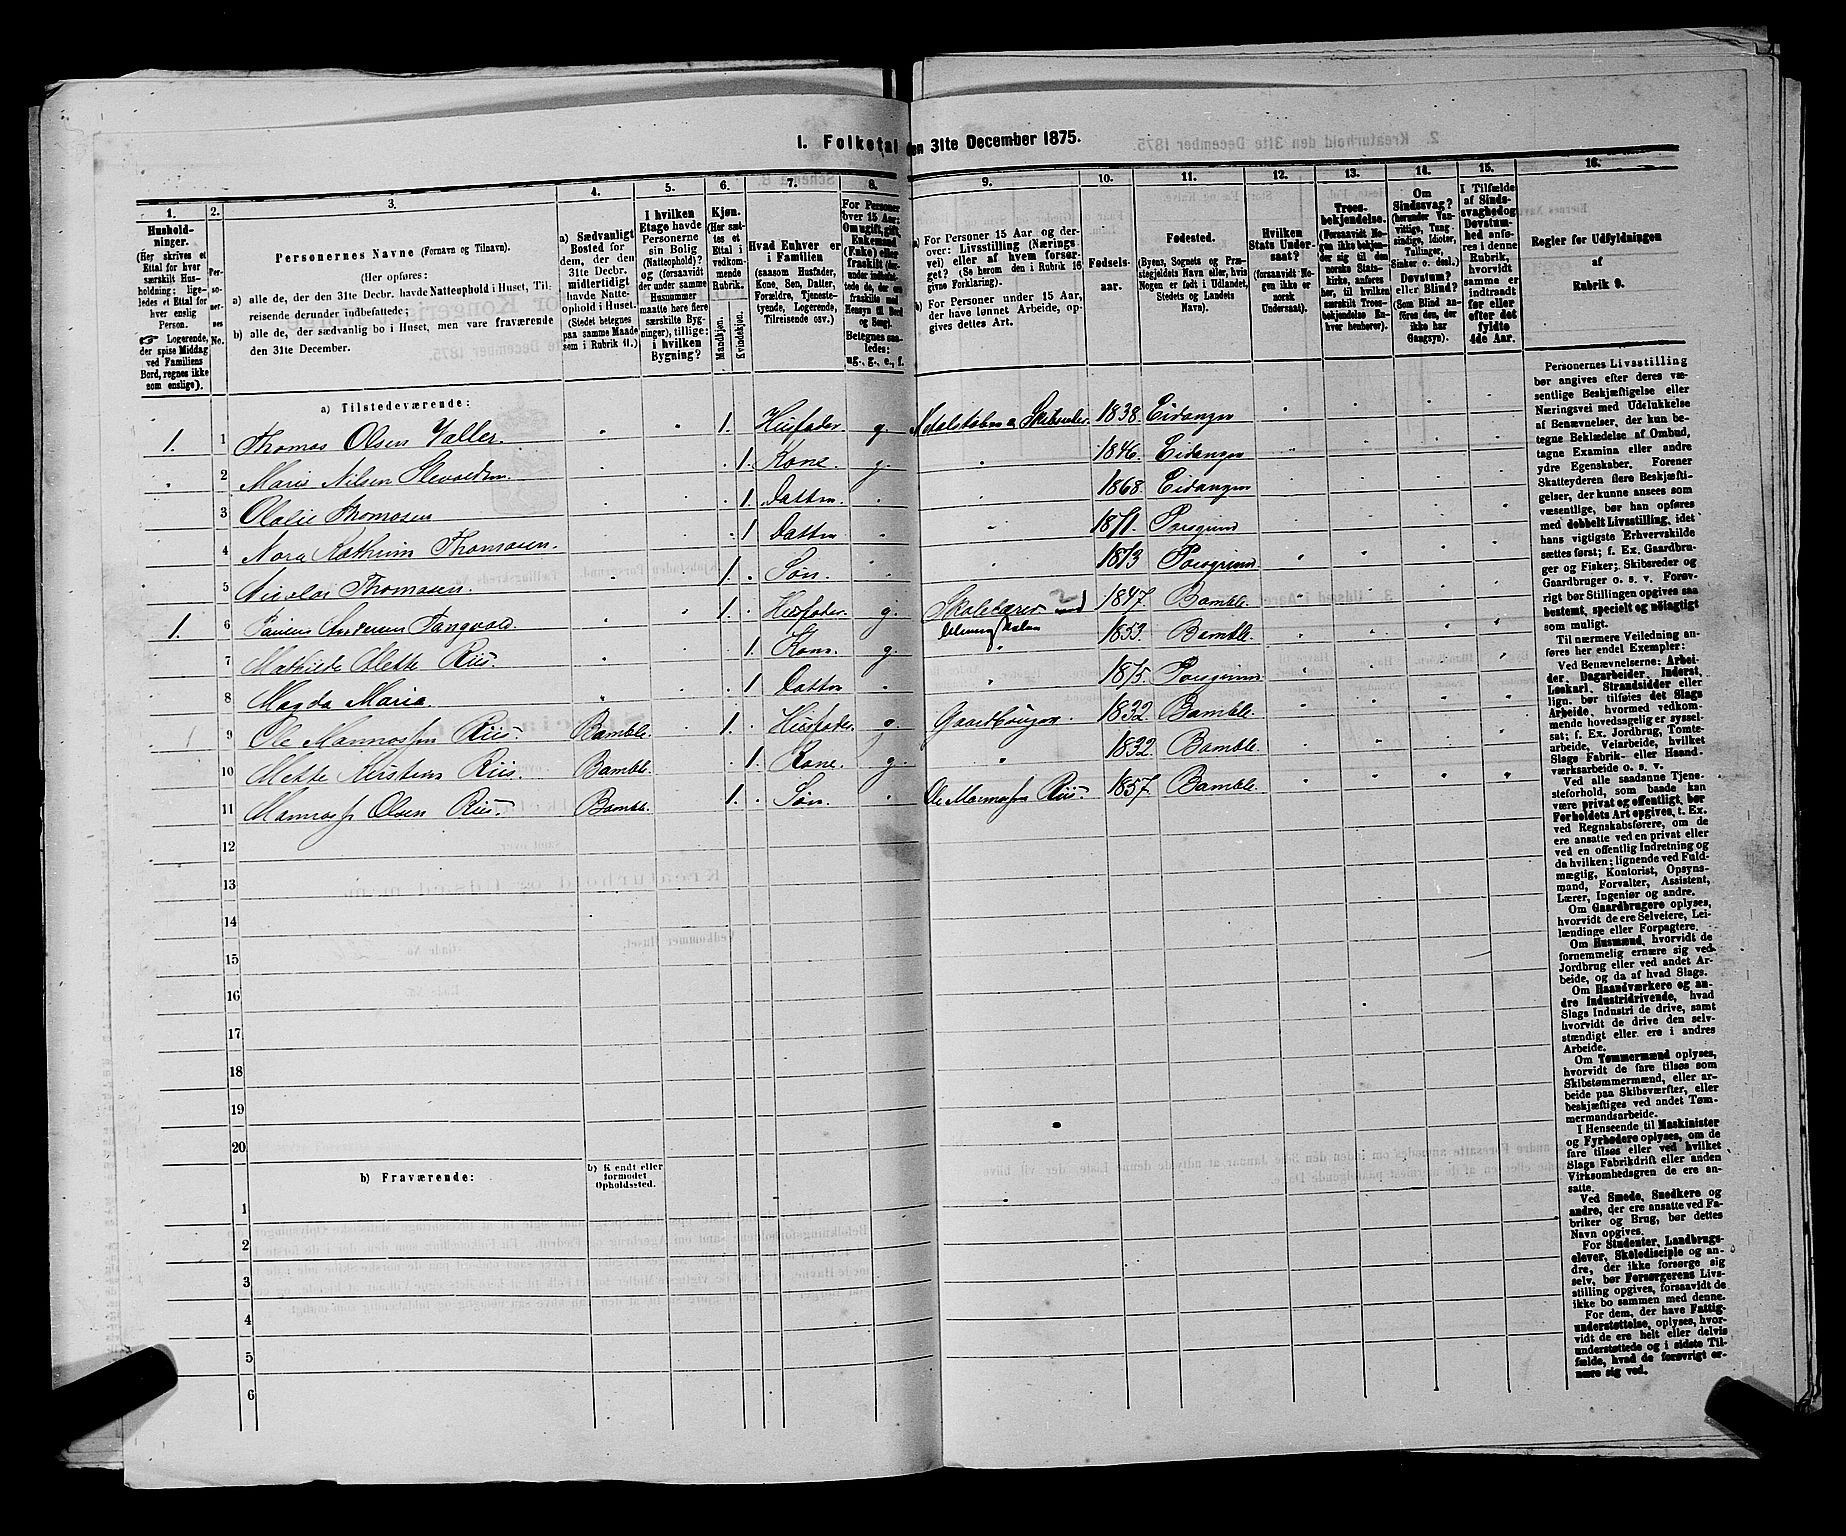 1. Folketal den 31te December 1875.
1. 2. 3. 4. 5. 6. 7. 8. 9. 10. 11. 12. 13. 14. 15. 16.
Husholdninger. (Her skrives et Ettal for hver særskilt Husholdning; ligeledes et Ettal for hver enslig Person. ☞ Logerende, der spise Middag ved Familiens Bord, regnes ikke som enslige).
Personernes No.
Personernes Navne (Fornavn og Tilnavn).
(Her opføres:
a) alle de, der den 31te Decbr. havde Natteophold i Huset, Tilreisende derunder indbefattede;
b) alle de, der sædvanlig bo i Huset, men vare fraværende den 31te December.
a) Sædvanligt Bosted for dem, der den 31te Decbr. midlertidigt havde Natteophold i Huset. (Stedet betegnes paa samme Maade som i Rubrik 11.)
I hvilken Etage havde Personerne sin Bolig (Natteophold)? og (forsaavidt der under samme Husnummer maatte høre flere særskilte Bygninger), tillige: i hvilken Bygning?
Kjøn. (Her sættes et Ettal i vedkommende Rubrik.
Mandkjøn. Kvindekjøn.
Hvad Enhver er i Familien (saasom Husfader, Kone, Søn, Datter, Forældre, Tjenestetyende, Logerende, Tilreisende osv.)
For Personer over 15 Aar: Om ugift, gift, Enkemand (Enke) eller fraskilt
Betegnes saaledes: ug., g., e., f.
a) For Personer 15 Aar og derover: Livsstilling (Næringsvei) eller af hvem forsørget? (Se herom den i Rubrik 16 givne Forklaring).
b) For Personer under 15 Aar, der have lønnet Arbeide, opgives dettes Art.
Fødselsaar.
Fødested. (Byens, Sognets og Præstegjeldets Navn eller, hvis Nogen er født i Udlandet, Stedets og Landets Navn).
Hvilken Stats Undersaat? (forsaavidt Nogen ikke er norsk Undersaat).
Troesbekjendelse. (Forsaavidt Nogen ikke bekjender sig til den norske Statskirke, anføres her, til hvilken særskilt Troesbekjendelse Enhver henhører).
Om Sindssvag? (herunder Vanvittige, Tungsindige, Idioter, Tullinger, Sinker o. desl.) Døvstum? eller Blind? (Som Blind anføres den, der ikke har Gangsyn).
I Tilfælde af Sindssvaghed og Døvstumhed anføres i denne Rubrik, hvorvidt samme er indtraadt før eller efter det fyldte 4de Aar.
Regler for Udfyldningen af Rubrik 9.
a) Tilstedeværende:
1. 1 Thomas Olsen Valler. 1. Husfader g. Skibsreder 1838. Eidanger
2 Maris Nilsen 1. Kone. g. 1846. Eidanger
3 Olalie Thomasen 1. Datter 1868. Eidanger
4 Nora Kathrine Thomasen. 1 Datter 1871. Porsgrund
5 Nicolai Thomasen. 1. Søn. 1873 Porsgrund
1. 6 Andersen Tangvald. 1. Husfader g. Skolelærer ved 1847. Bamble.
7 Mathilde Mette Riis. 1. Kone. g. 1853. Bamble.
8 Magda Maria 1 Datter 1875. Porsgrund
9 Ole Riis. Bamble. 1. Husfader. g. Gaardbruger. 1832. Bamble.
10 Mette Kirstine Riis. Bamble. 1. Kone. g. 1832. Bamble.
11 Olsen Riis. Bamble. 1. Søn Ole Riis. 1857. Bamble.
12
13
14
15
16
17
18
19
20
b) Fraværende:
b) Kendt eller formodet Opholdssted.
1
2
3
4
5
6
Personernes Livsstilling
bør angives efter deres væ-
sentlige Beskjæftigelse eller
Næringsvei med Udelukkelse
af Benævnelser, der kun be-
tegne Beklædelse af Ombud,
tagne Examina eller andre
ydre Egenskaber. Forener
Skatteyderen flere Beskjæfti-
gelser, der kunne ansees som
væsentlige, bør han opføres
med dobbelt Livsstilling, idet
hans vigtigste Erhvervskilde
sættes først; f. Ex. Gaardbru-
ger og Fisker; Skibsreder og
Gaardbruger o. s. v. Forøv-
rigt bør Stillingen opgives saa
bestemt, specielt og nøiagtigt
som muligt.
Til nærmere Veiledning an-
føres her endel Exempler:
Ved Benævnelserne: Arbei-
der, Dagarbeider, Inderst,
Løskarl, Strandsidder eller
lign. bør tilføies det Slags
Arbeide, hvormed vedkom-
mende hovedsagelig er syssel-
sat; f. Ex. Jordbrug, Tomte-
arbeide, Veiarbeide, hvilket
Slags Fabrik- eller Haand-
værksarbeide o. s. v.
Ved alle saadanne Tjene-
steforhold, som baade kan
være privat og offentligt, bør
Forholdets Art opgives, t. Ex.
ved Regnskabsførere, om de
ere ansatte ved en privat eller
ved en offentlig Indretning og
da hvilken; lignende ved Fuld-
mægtig, Kontorist, Opsyns-
mand, Forvalter, Assistent,
Lærer, Ingeniør og andre.
Om Gaardbrugere oplyses,
hvorvidt de ere Selveiere, Lei-
lændinge eller Forpagtere.
Om Husmænd, hvorvidt de
fornemmelig ernære sig ved
Jordbrug eller ved andet Ar-
beide, og da af hvad Slags.
Om Haandværkere og an-
dre Industridrivende, hvad
Slags Industri de drive, samt
hvorvidt de drive den selv-
stændigt eller ere i andres
Arbeide.
Om Tømmermænd oplyses,
hvorvidt de fare tilsøs som
Skibstømmermænd, eller ar-
beide paa Skibsværfter, eller
beskjæftiges ved andet Tøm-
mermandsarbeide.
I Henseende til Maskinister
og Fyrbødere oplyses, om de
fare tilsøs eller ved hvilket
Slags Fabrikdrift eller anden
Virksomhedsgren de ere an-
satte.
Ved Smede, Snedkere og
andre, der ere ansatte ved Fa-
briker og Brug, bør dettes
Navn opgives.
For Studenter, Landbrugs-
elever, Skoledisciple og an-
dre, der ikke forsørge sig
selv, bør Forsørgerens Livs-
stilling opgives, forsaavidt de
ikke bo sammen med denne.
For dem, der have Fattig-
understøttelse, oplyses, hvor-
vidt de ere helt eller delvis
understøttede og i sidste Til-
fælde, hvad de forøvrigt er-
nære sig ved.